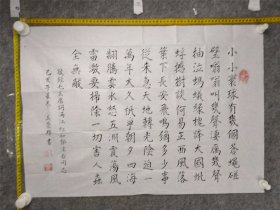 小小寰球有幾個蒼蠅碰
壁嗡嗡叫幾聲凄厲幾聲
抽泣螞蟻緣槐誇大國蚍
蜉撼樹談何易正西風落
葉下長安飛鳴鏑多少事
從來急天地轉光陰迫一
萬年太久只爭朝夕四海
翻騰雲水怒五洲震蕩風
雷激要掃除一切害人蟲
全無敵
毛主席詞滿江紅和郭沫若同志
己亥年書